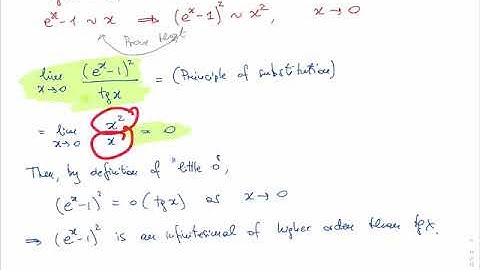 eˣ-1 ~ x ⟹ (eˣ-1)² ~ x², x → 0
Prove that
lim x→0 (eˣ-1)² / tg x = (Principle of substitution)
= lim x→0 x² / x = 0
Then, by definition of "little o",
(eˣ-1)² = o(tg x) as x → 0
⟹ (eˣ-1)² is an infinitesimal of higher order than tg x.